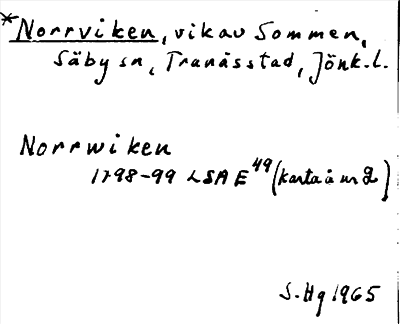 *Norrviken, vik av Sommen,
Säby sn, Tranås stad, Jönk.l.
Norrwiken
1798-99 LSA E 49 (karta ö ur 2)
S. Hg 1965